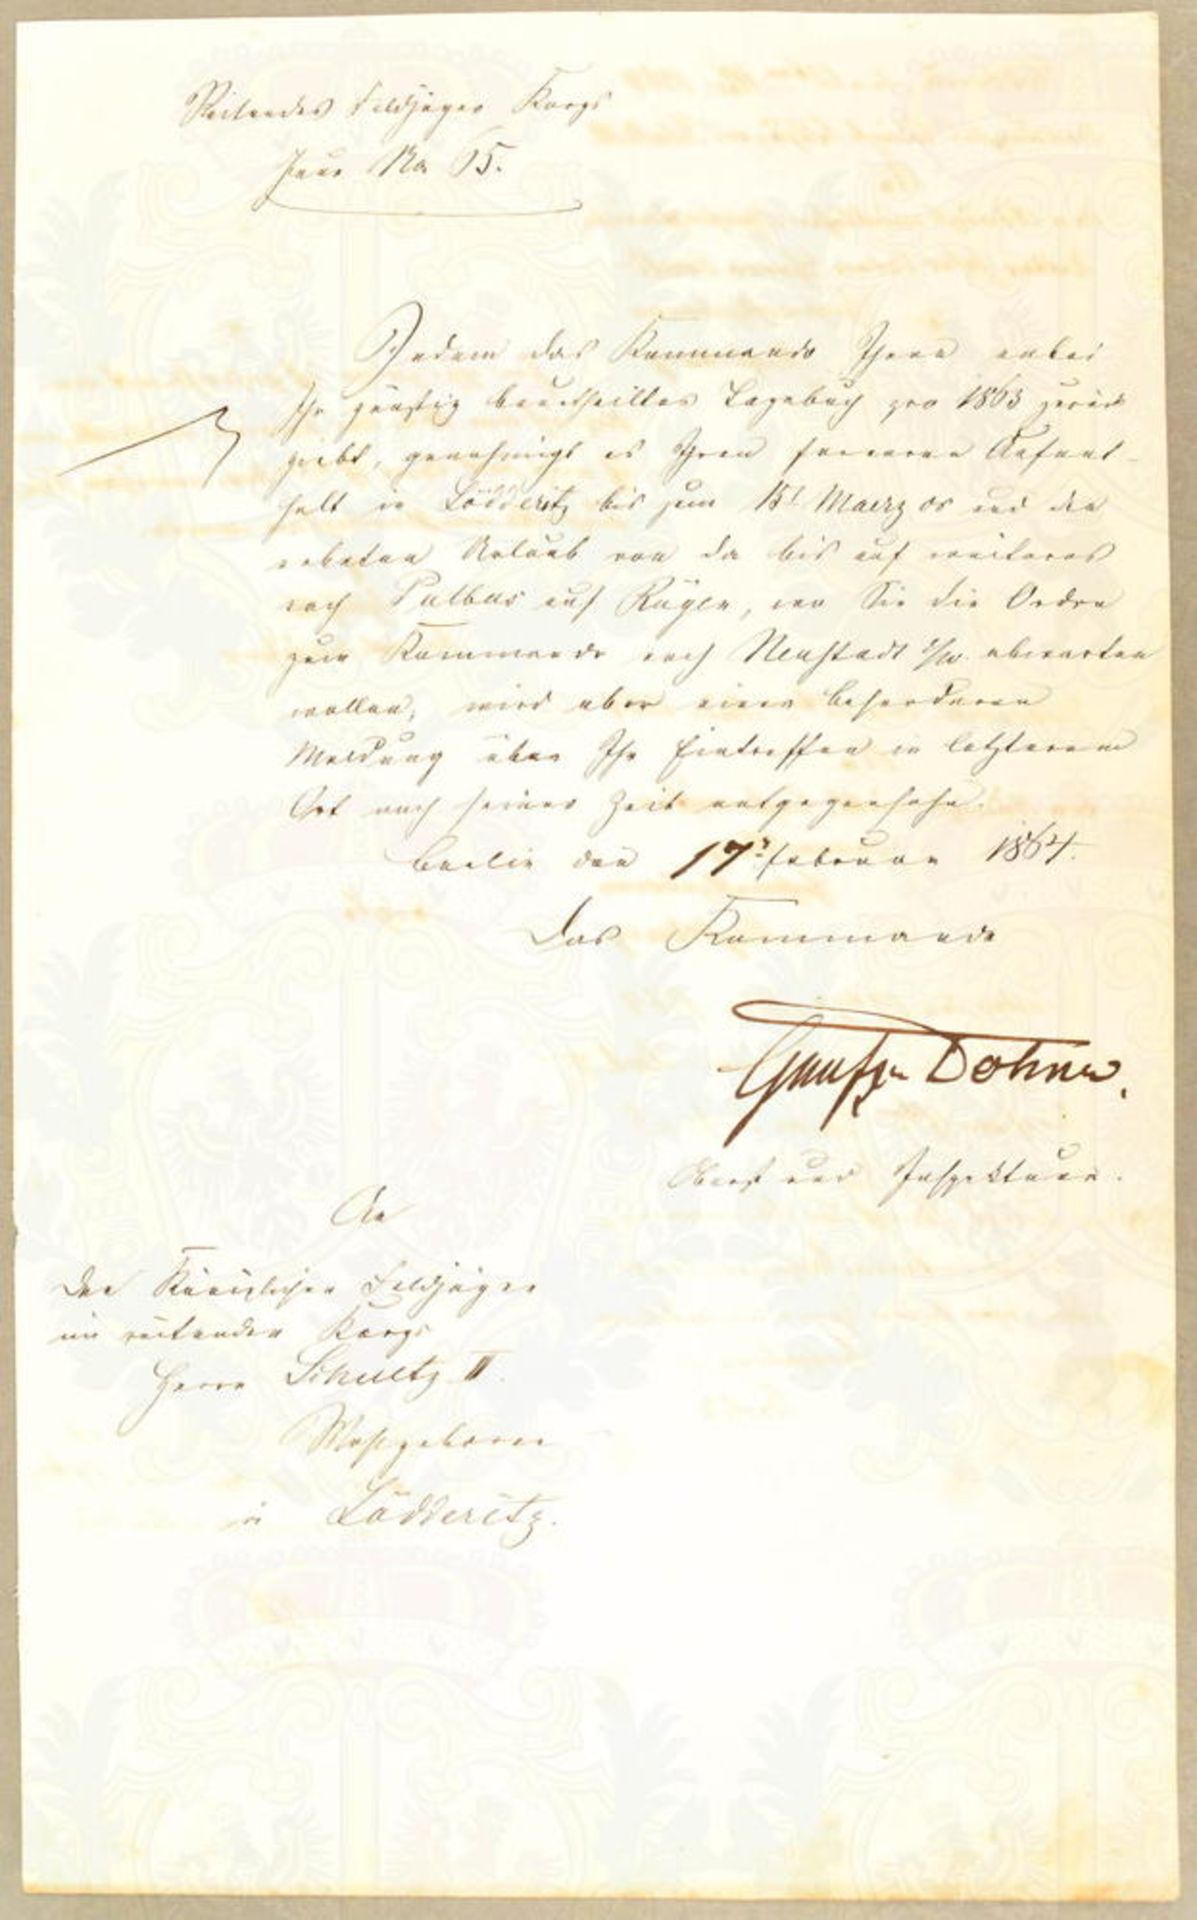 Reitendes Feldjäger Korps
Jour No 65.
Indem das Kommando Ihnen anbei
Ihr günstig beurtheiltes Tagebuch pro 1863 zurück
giebt, genehmigt es Ihren ferneren Aufent-
halt in Lödderitz bis zum 15t Maerz cr und den
erbetenen Urlaub von da bis auf weiteres
nach Putbus auf Rügen, wo Sie die Ordre
zum Kommando nach Neustadt E/W. abwarten
wollen, wird aber einer besonderen
Meldung über Ihr Eintreffen in letzterem
Ort auch seiner Zeit entgegensehn.
Berlin den 17t Februar 1864.
Das Kommando
Graf zu Dohna.
Oberst und Inspekteur.
An
den Königlichen Feldjäger
im reitenden Korps
Herrn Schultz II.
Wohlgeboren
in Lödderitz.